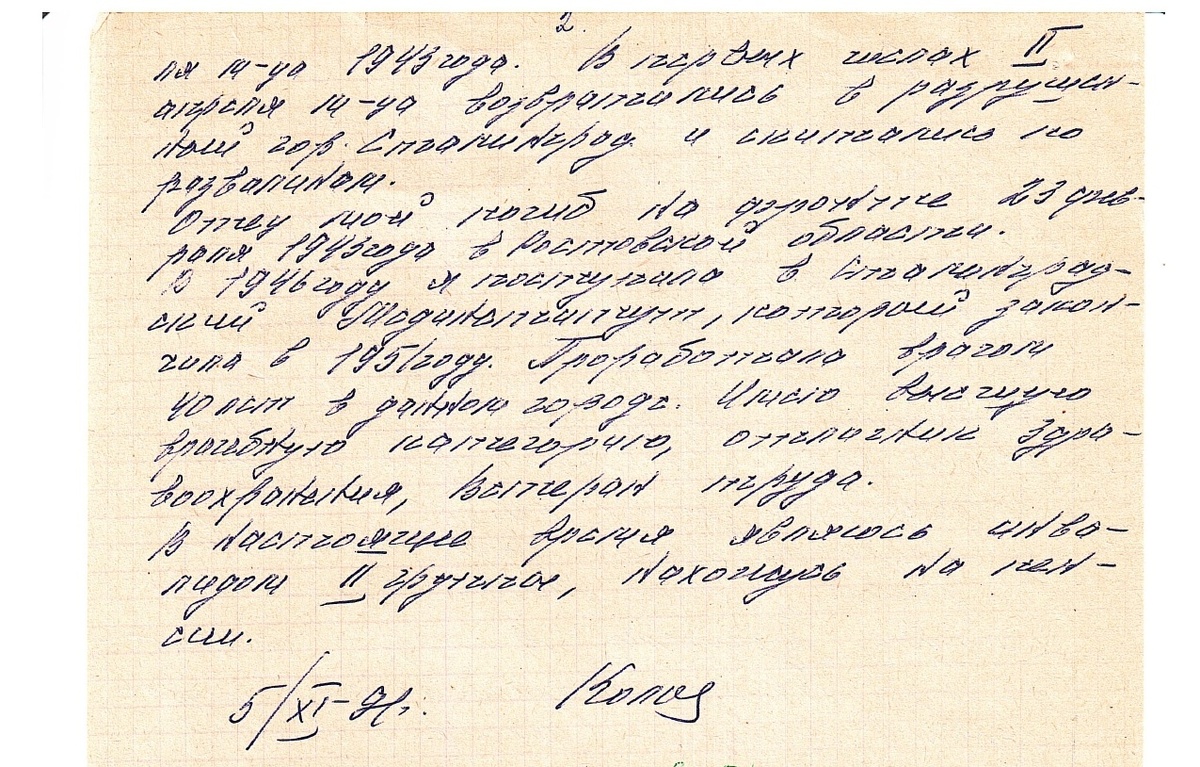 2.
ля м-ца 1943 года. В первых числах II
апреля м-ца возвратились в разрушен-
ный гор. Сталинград и скитались по
развалинам.
Отец мой погиб на фронте 23 фев-
раля 1943 года в Ростовской области.
В 1946 году я поступила в Сталинград-
ский Мединститут, который закон-
чила в 1951 году. Проработала врачом
40 лет в данном городе. Имею высшую
врачебную категорию, отличник Здра-
воохранения, Ветеран труда.
В настоящие время являюсь инва-
лидом II группы, нахожусь на пен-
сии.
5/XI-91г.